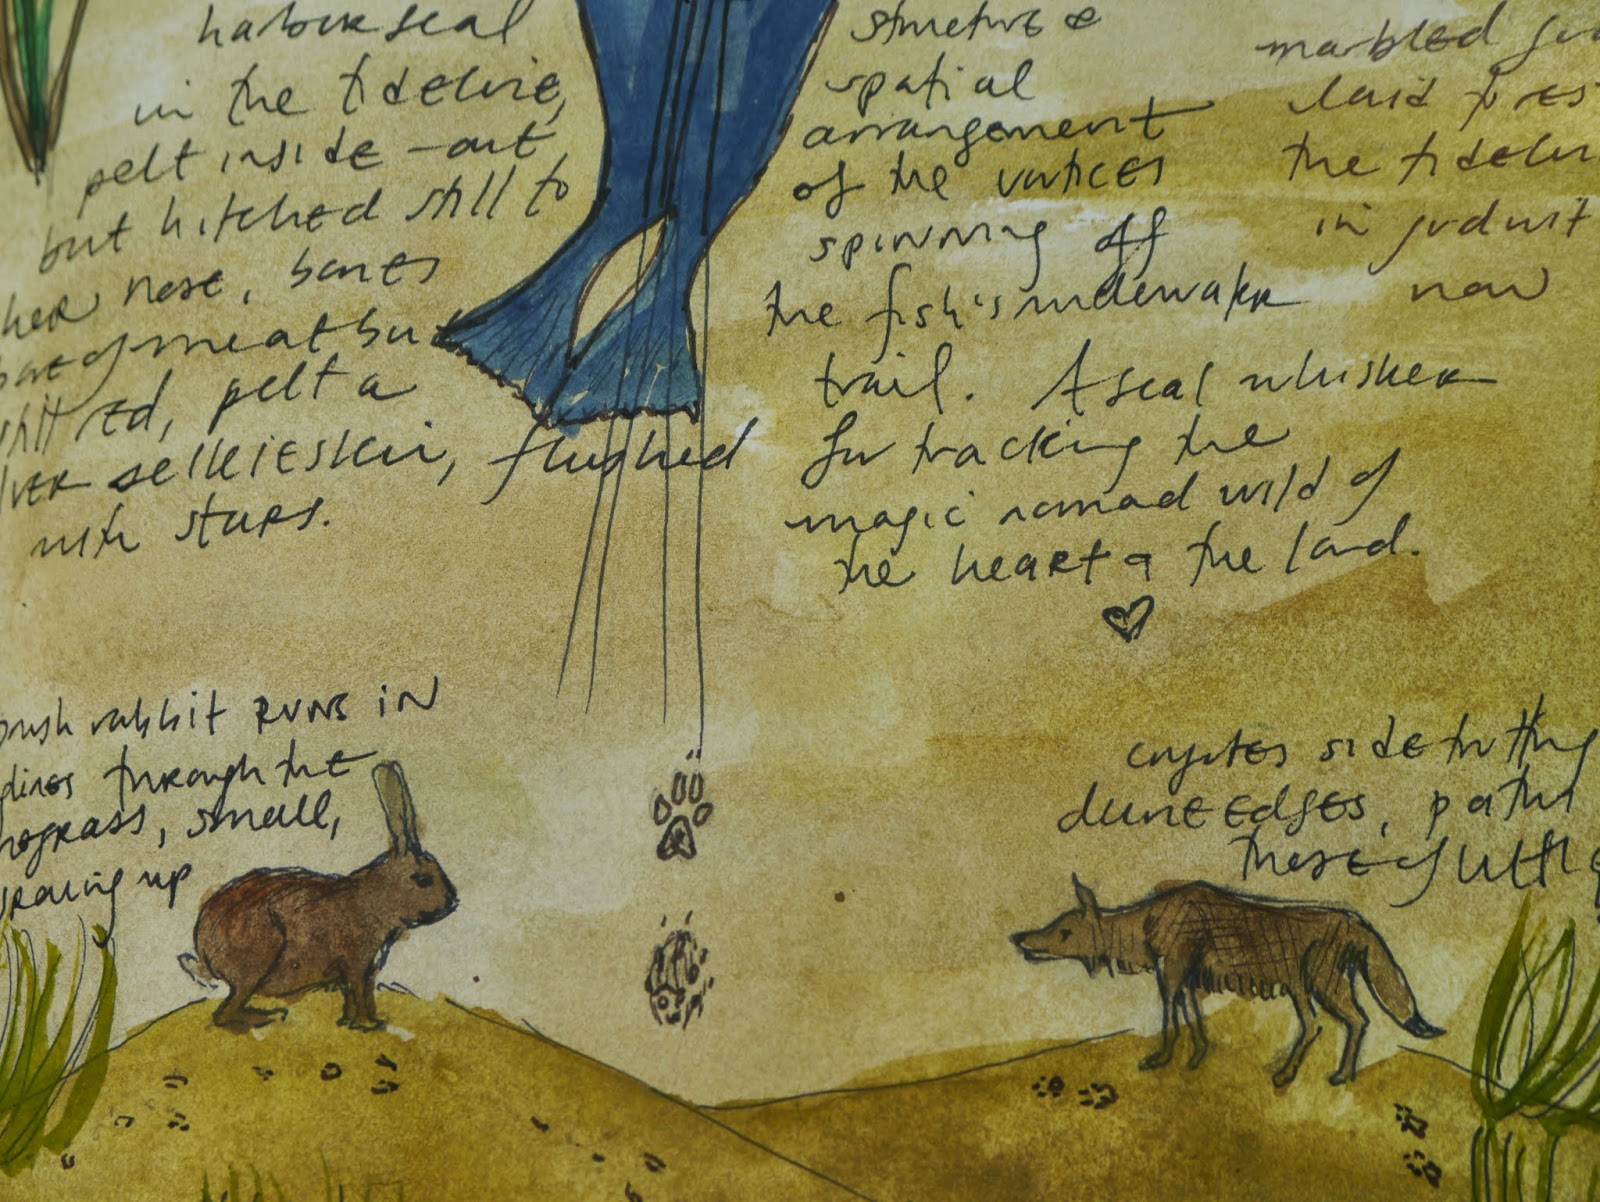 harbor seal
in the tideline,
pelt inside-out
but hitched still to
her nose, bones
bare of meat but
red, pelt a
selkieskin, flushed
with stars.
structure &
spatial
arrangement
of the vortices
spinning off
the fish's underwater
trail. A seal whisker
for tracking the
magic nomad wild of
the heart & the land.
marbled
laid to rest
the tideline
in
now
brush rabbit RUNS iN
lines through the
small,
up
coyotes side trotting
dune edges, paths
these of little